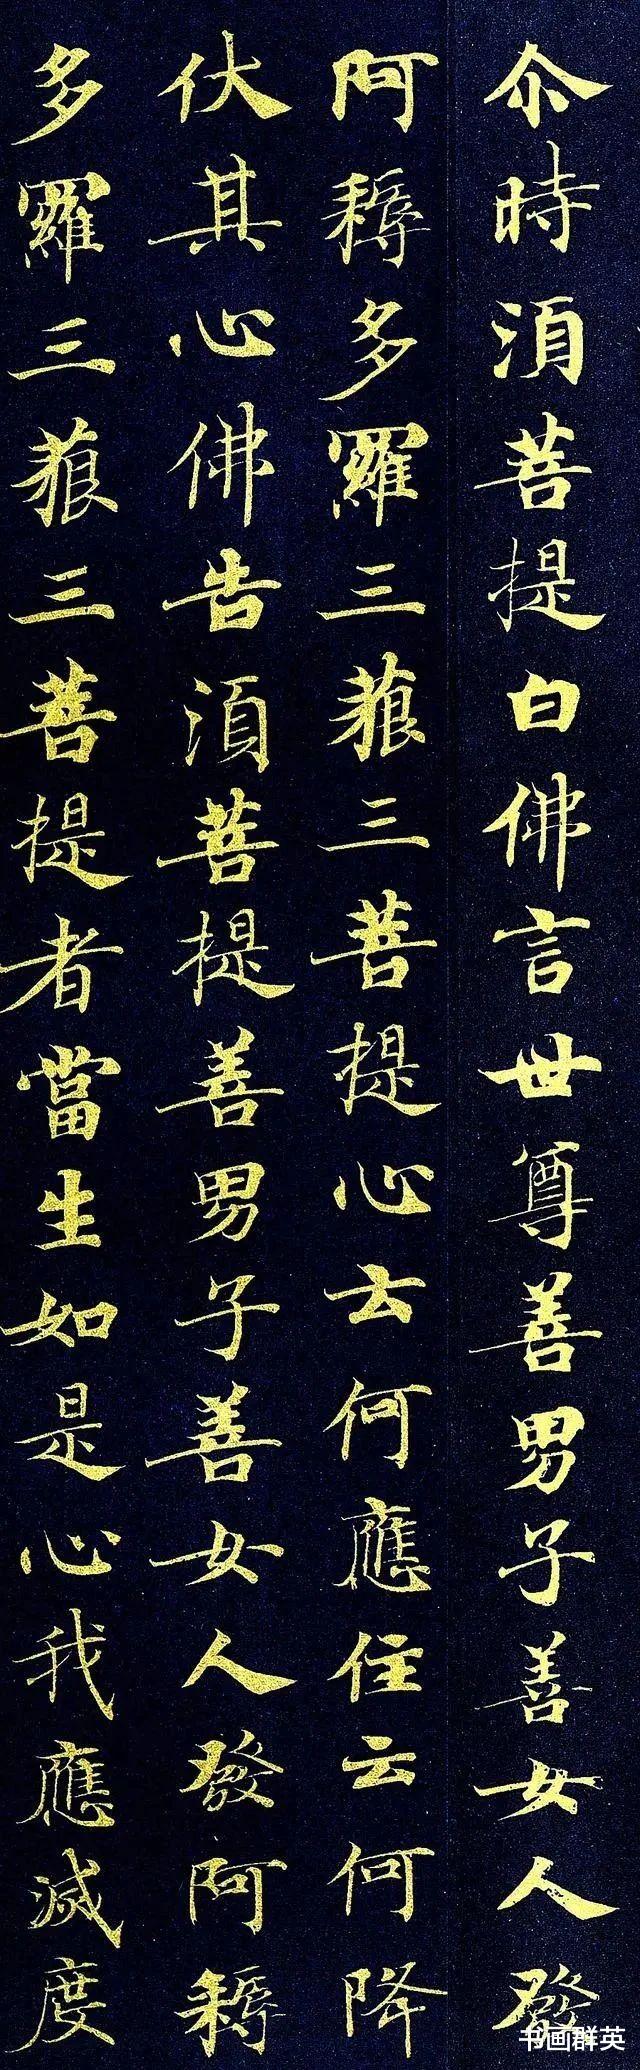 尒時湏菩提白佛言世尊善男子善女人發
阿耨多羅三藐三菩提心云何應住云何降
伏其心佛告湏菩提善男子善女人發阿耨
多羅三藐三菩提者當生如是心我應滅度
书画群英